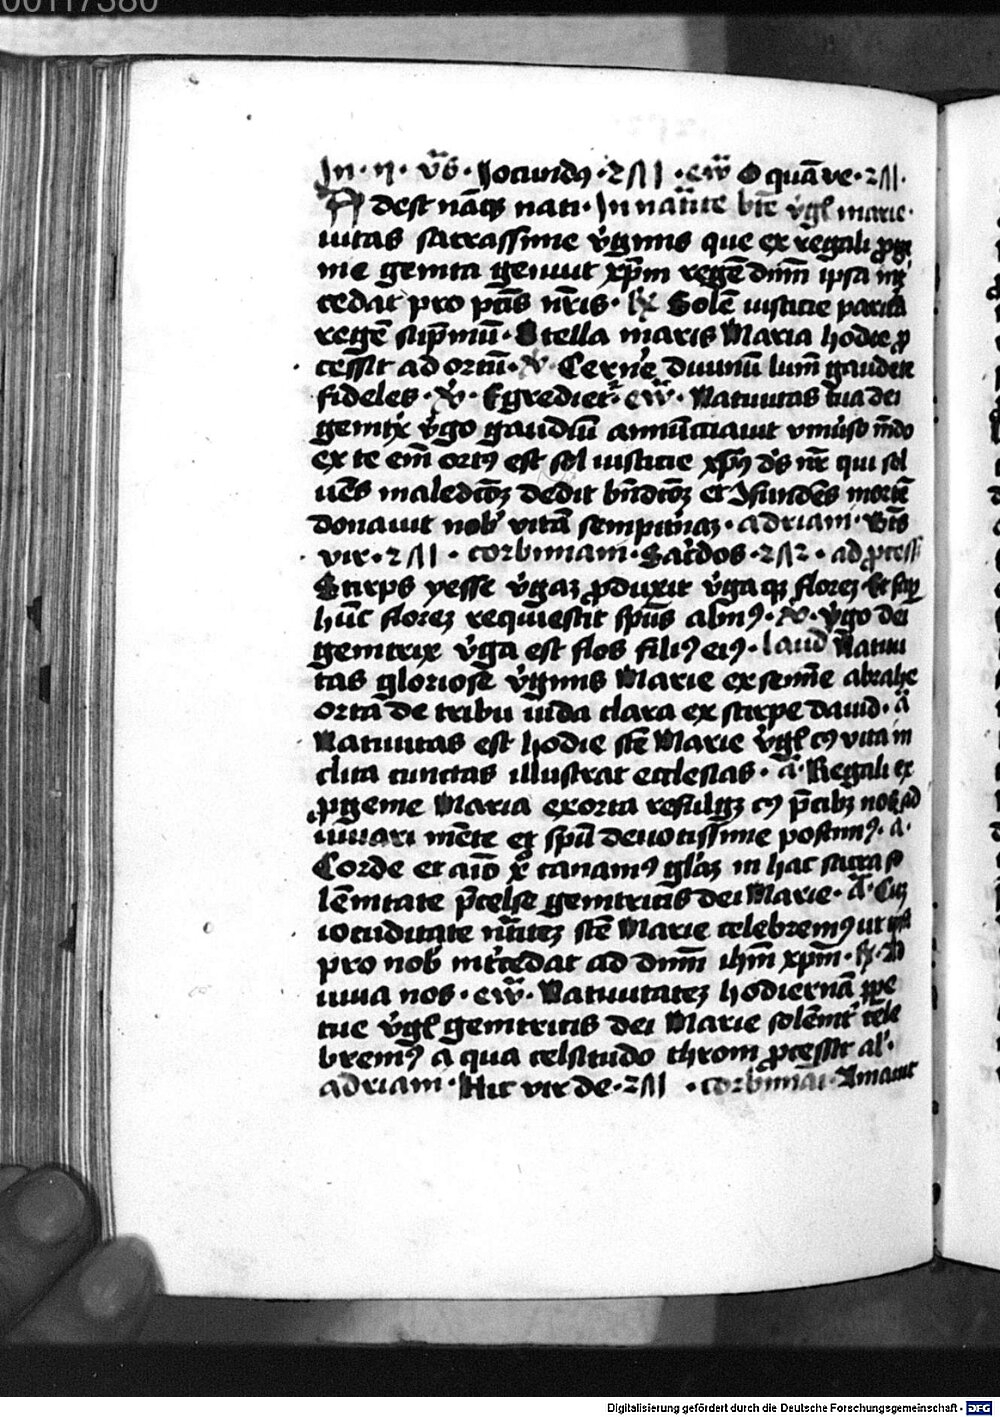 00117380
In · ij · v̄s · Jocundꝯ · ew̄ O quā ve ·
Adest nāq nati · In nat̄iūte bt̄e v̓gī marie ·
uitas sacrassime v̓ginis que ex regali ꝓge
nie genita genuit xp̄m regē dn̄m ipsa int̓
cedat pro pctīs nr̄is · Solē iusticie paritā
regē sup̄mū · Stella maris Maria hodie ꝓ
cessit ad ortū · V̓ · Cernē diuinū lum̄ gaudete
fideles · V̓ · Egrediet᷑ · ew̄ · Natiuitas tua dei
genitx̓ v̓go gaudiū annūciauit vniu̓so mūdo
ex te em̄ ortꝯ est sol iusticie xp̄s ds̄ nr̄ qui sol
uēs maledcōꝫ dedit bn̄dcōꝫ et ꝯfundēs mortē
donauit nob̓ vitā sempit̓naꝫ · adriani · Bt̄s
vir · corbiniani · Sac̓dos · ad ꝓcess̄
Stirps yesse v̓gaꝫ ꝓduxit v̓gaqꝫ floreꝫ · Et sup̄
hūc floreꝫ requiescit spūs almꝯ · V̓ · v̓go dei
genitrix v̓ga est flos filiꝯ eiꝯ · laud̄ Natiui
tas gloriose v̓ginis Marie ex semīe abrahe
orta de tribu iuda clara ex stirpe dauid · ā
Natiuitas est hodie sc̄e Marie v̓gī cꝯ vita in
clita cunctas illustrat ecclesias · ā · Regali ex
ꝓgenie Maria exorta refulgꝫ cꝯ p̄cibꝫ nos ad
iuuari mēte et spū deuotissime poscimꝯ · a ·
Corde et aīo x̓ canamꝯ gl̓aꝫ in hac sacra so
lēnitate p̄celse genitricis dei Marie · ā · Cuꝫ
iocūditate nat̄iteꝫ sc̄e Marie celebremꝯ ut ip̄a
pro nob̓ int̓cedat ad dn̄m ihm̄ xpm̄ · Ad
iuua nos · ew̄ · Natiuitateꝫ hodiernā ꝑpe
tue v̓gī genitricis dei Marie solēnit̓ cele
bremꝯ a qua celsitudo throni ꝓcessit al̓ ·
adriani · Hic vir de · corbiniāi · Amauit
Digitalisierung gefördert durch die Deutsche Forschungsgemeinschaft - DFG